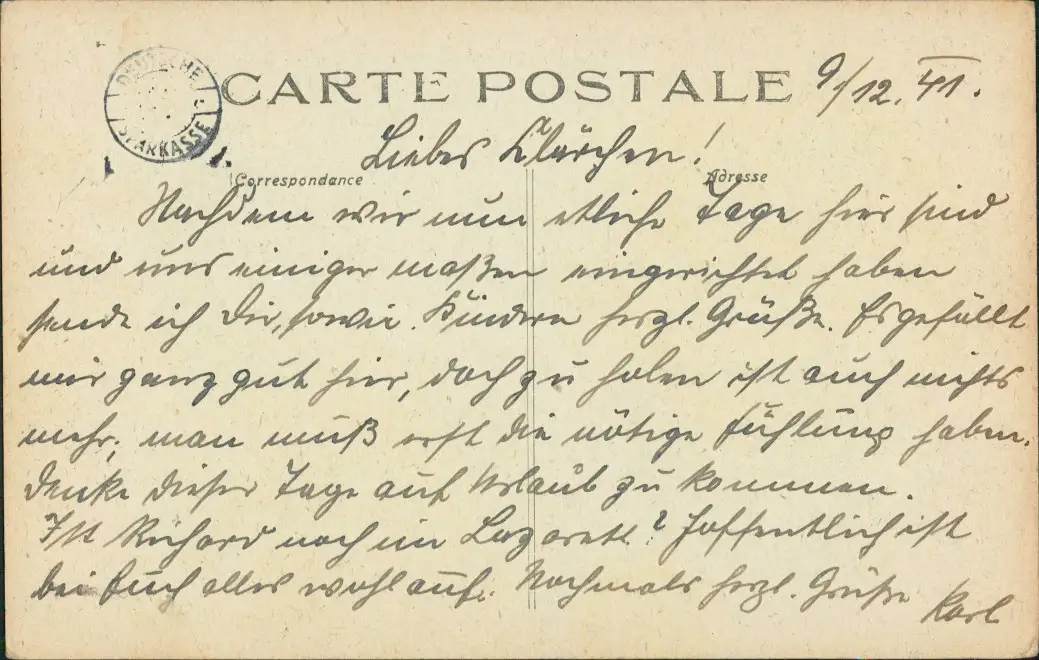 DEUTSCHE
SPARKASSE
CARTE POSTALE 9/12. 41.
Liebes Klärchen!
Correspondance
Adresse
Nachdem wir nun etliche Tage hier sind
und uns einiger maßen eingerichtet haben
sende ich Dir, sowie Kindern herzl. Grüße. Es gefällt
mir ganz gut hier, doch zu holen ist auch nichts
mehr, man muß erst die nötige Fühlung haben.
Denke dieser Tage auf Urlaub zu kommen.
Ist Richard noch im Lazarett? Hoffentlich ist
bei Euch alles wohl auf. Nochmals herzl. Grüße
Karl